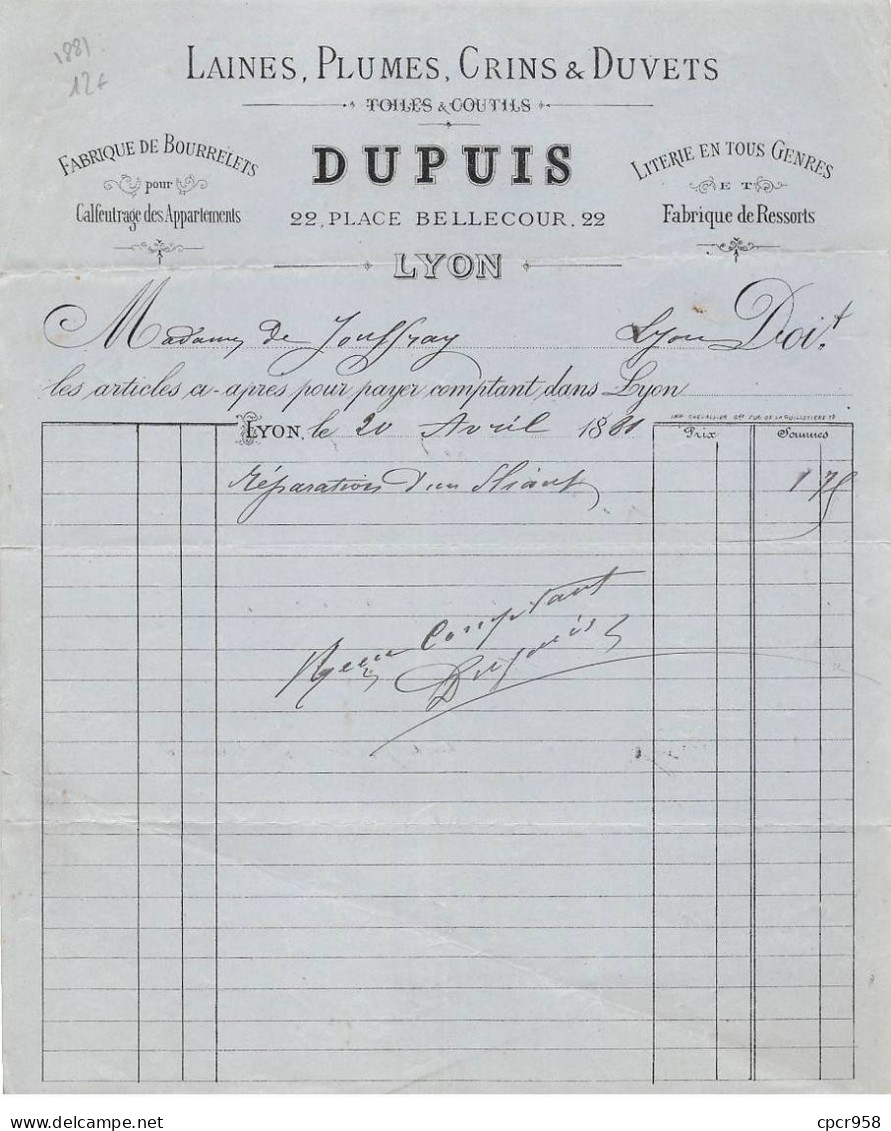 1881
12f
LAINES, PLUMES, CRINS & DUVETS
TOILES & COUTILS
FABRIQUE DE BOURRELETS
pour
Calfeutrage des Appartements
DUPUIS
22, PLACE BELLECOUR, 22
LYON
LITERIE EN TOUS GENRES
ET
Fabrique de Ressorts
Madame de Jouffray Lyon Doit
les articles ci-après pour payer comptant dans Lyon
IMP. CHEVALLIER
LYON, le 20 Avril 1881
Prix Sommes
Réparation d'un 1 75
Comptant
Dupuis
For sale on www.delcampe.net
cpcr958